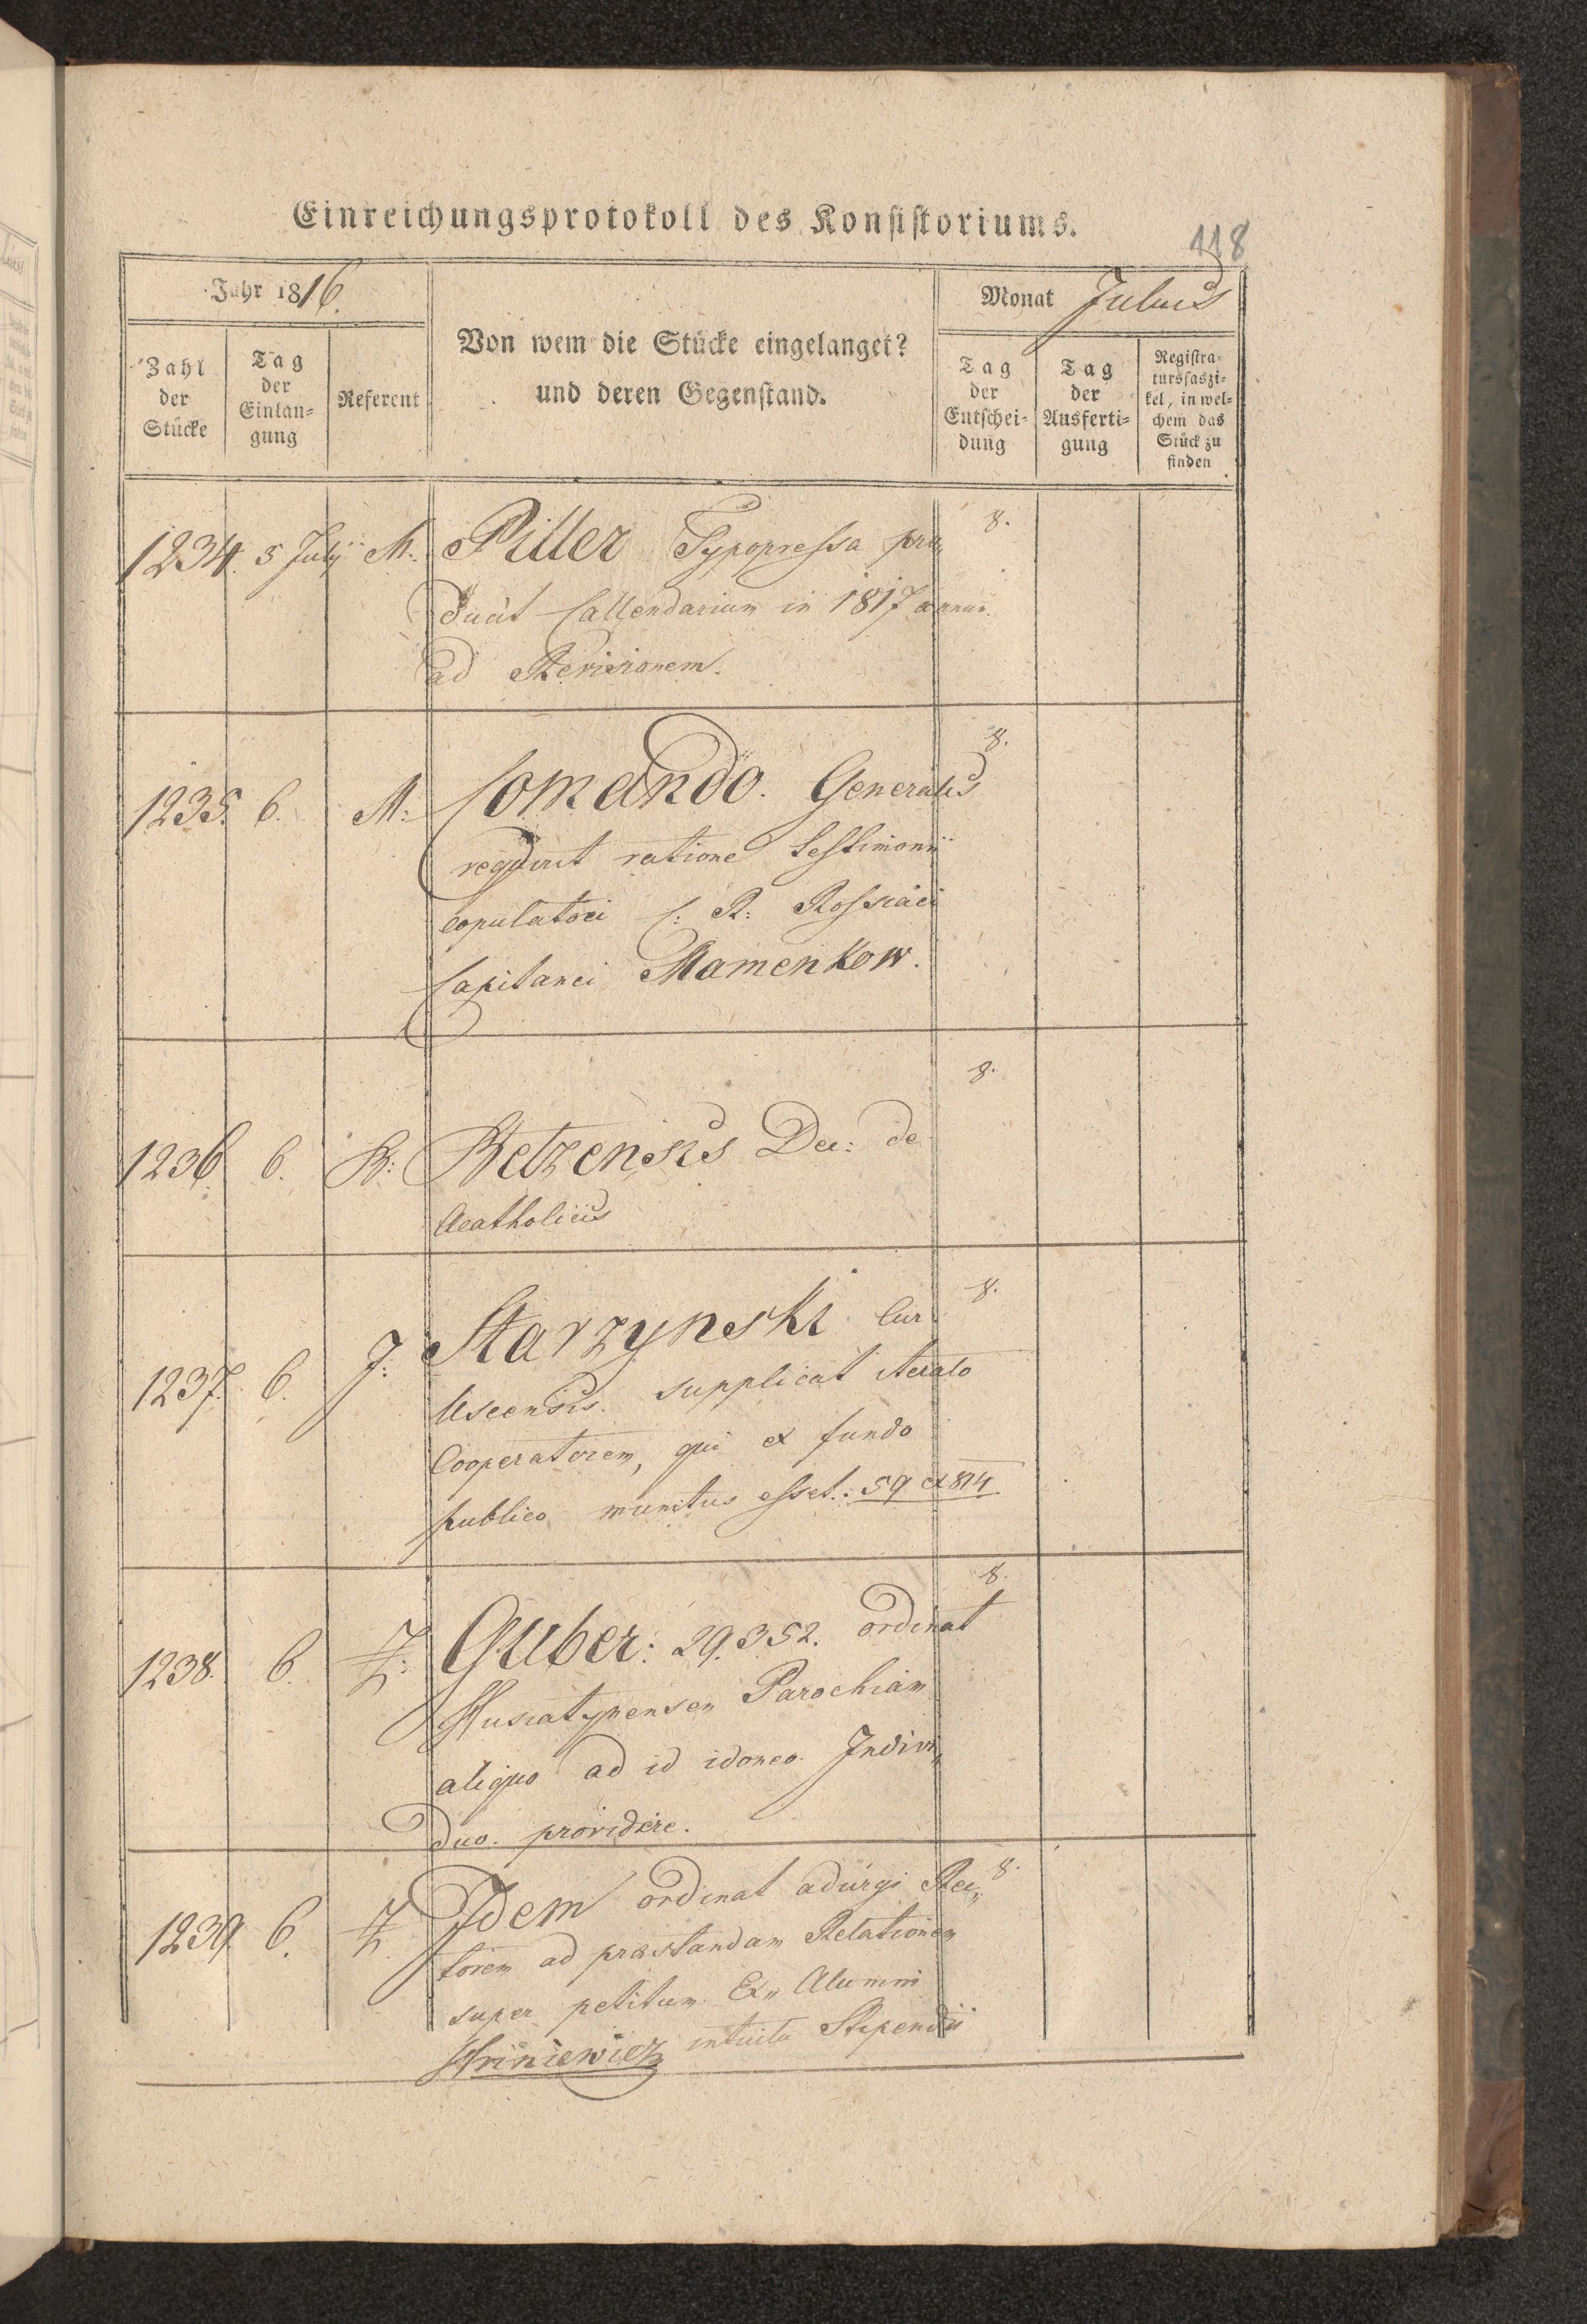 Einreichungsprotokoll des Konsistoriums.
118
Jahr 1816.
Von wem die Stücke eingelanget?
und deren Gegenstand.
Monat Julius
Zahl der Stücke
Tag der Einlan=gung
Referent
Tag der Entschei=dung
Tag der Ausferti=gung
Registra=tursfaszi=kel, in wel=chem das Stück zu finden
1234. 5 July M. Piller Typopressa pro„ 8.
ducit Callendarium in 1817 annum
ad Revisionem.
1235. 6. M: Comando Generales 8.
requirit ratione Testimonii
copulatori C: R: Rossiaci
Capitanei Mamenkow.
1236. 6. B: Betzensis Dec: de 8.
Acatholicis
1237. 6. J: Starzynski Cur: 8.
Usceensis. supplicat iterato
Cooperatorem, qui ex fundo
publico munitus esset. 59 ex 814
1238. 6. Z: Guber: 29.352. ordinat 8.
Husiatynensem Parochiam
aliquo ad id idoneo Indivi„
duo. providere.
1239. 6. Z Idem ordinat adurgi Rec„ 8.
torem ad præstandam Relationem
super petitum Ex„ Alumni
Hriniewicz intuitu Stipendii